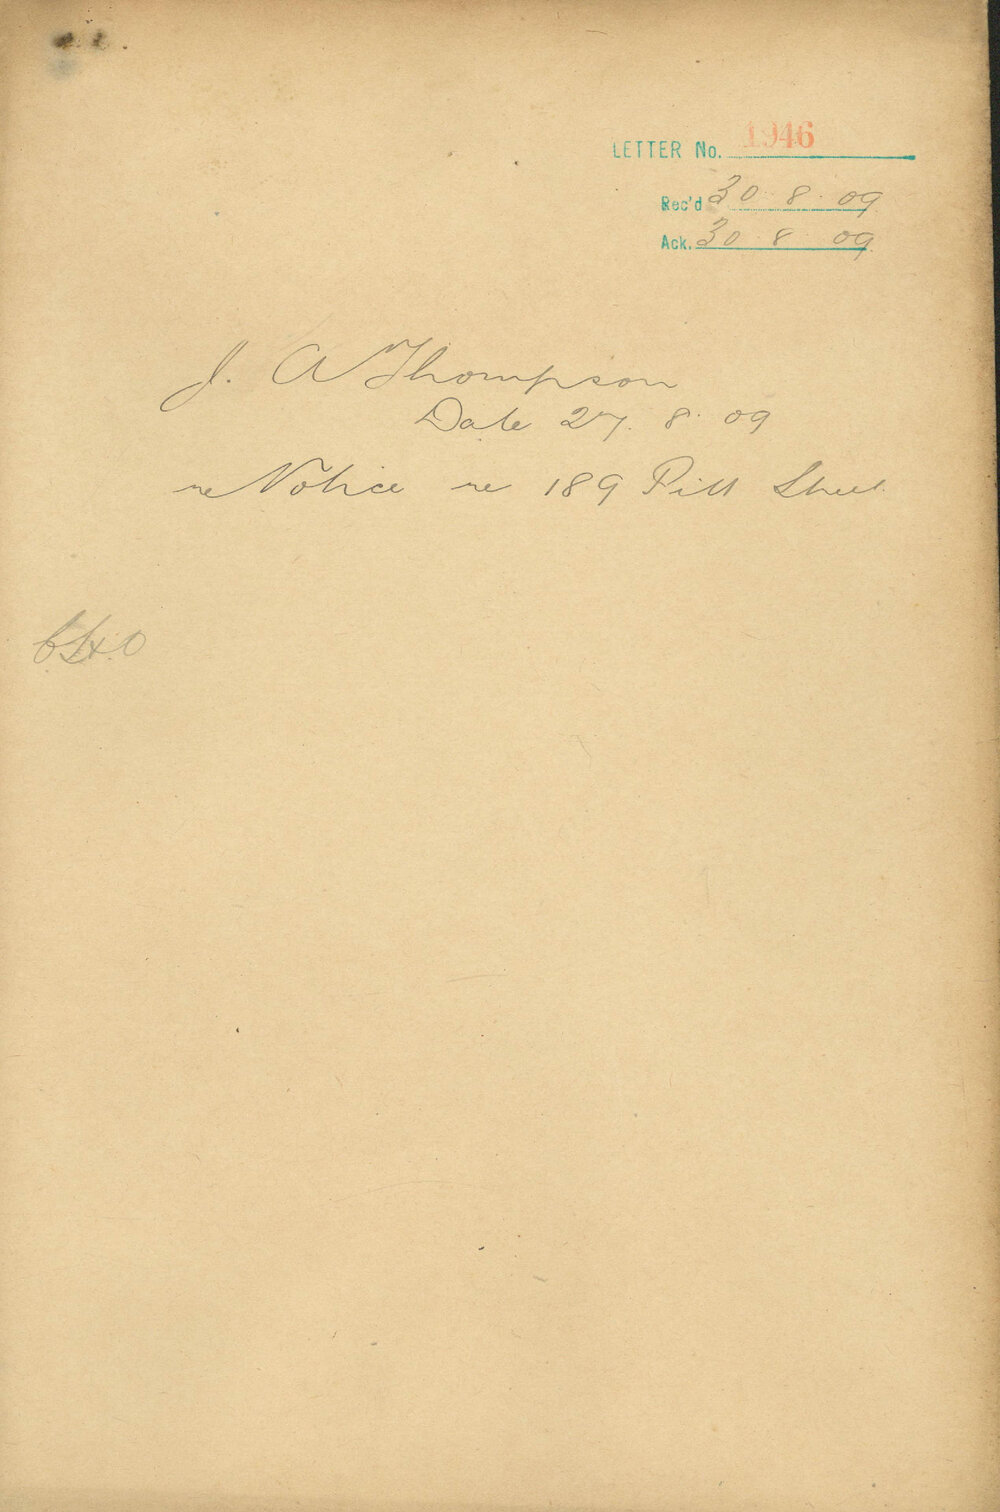 LETTER No. 1946
Rec'd 30 8 09
Ack. 30 8 09
J. A Thompson
Date 27. 8. 09
re Notice re 189 Pitt Street